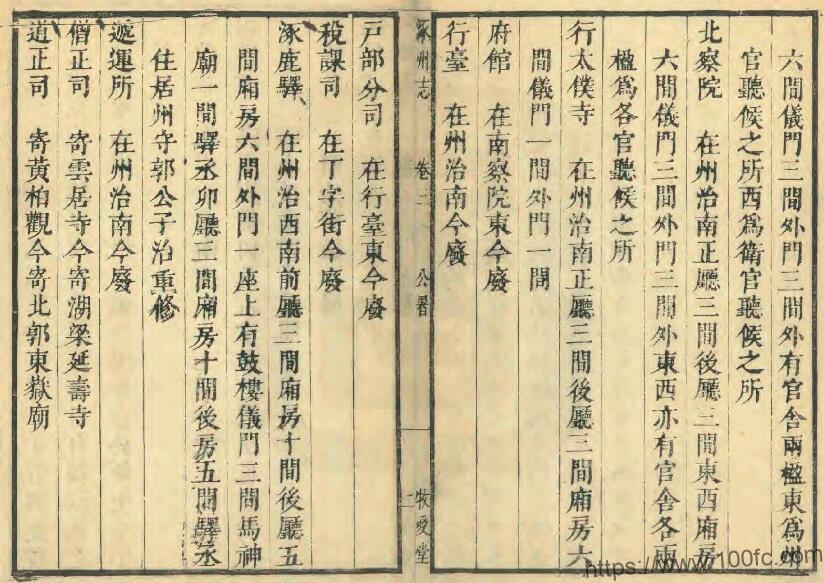 六間儀門三間外門三間外有官舍兩楹東爲州
官聽候之所西爲衛官聽候之所
北察院 在州治南正廳三間後廳三間東西廂房
六間儀門三間外門三間外東西亦有官舍各兩
楹爲各官聽候之所
行太僕寺 在州治南正廳三間後廳三間廂房六
間儀門一間外門一間
府館 在南察院東今廢
行臺 在州治南今廢
涿州志 卷二 公署 一 牧愛堂
戶部分司 在行臺東今廢
稅課司 在丁字街今廢
涿鹿驛 在州治西南前廳三間廂房十間後廳五
間廂房六間外門一座上有鼓樓儀門三間馬神
廟一間驛丞卯廳三間廂房十間後房五間驛丞
住居州守郭公子治重修
遞運所 在州治南今廢
僧正司 寄雲居寺今寄湖梁延壽寺
道正司 寄黃柏觀今寄北郭東嶽廟
https://www.100fc.com